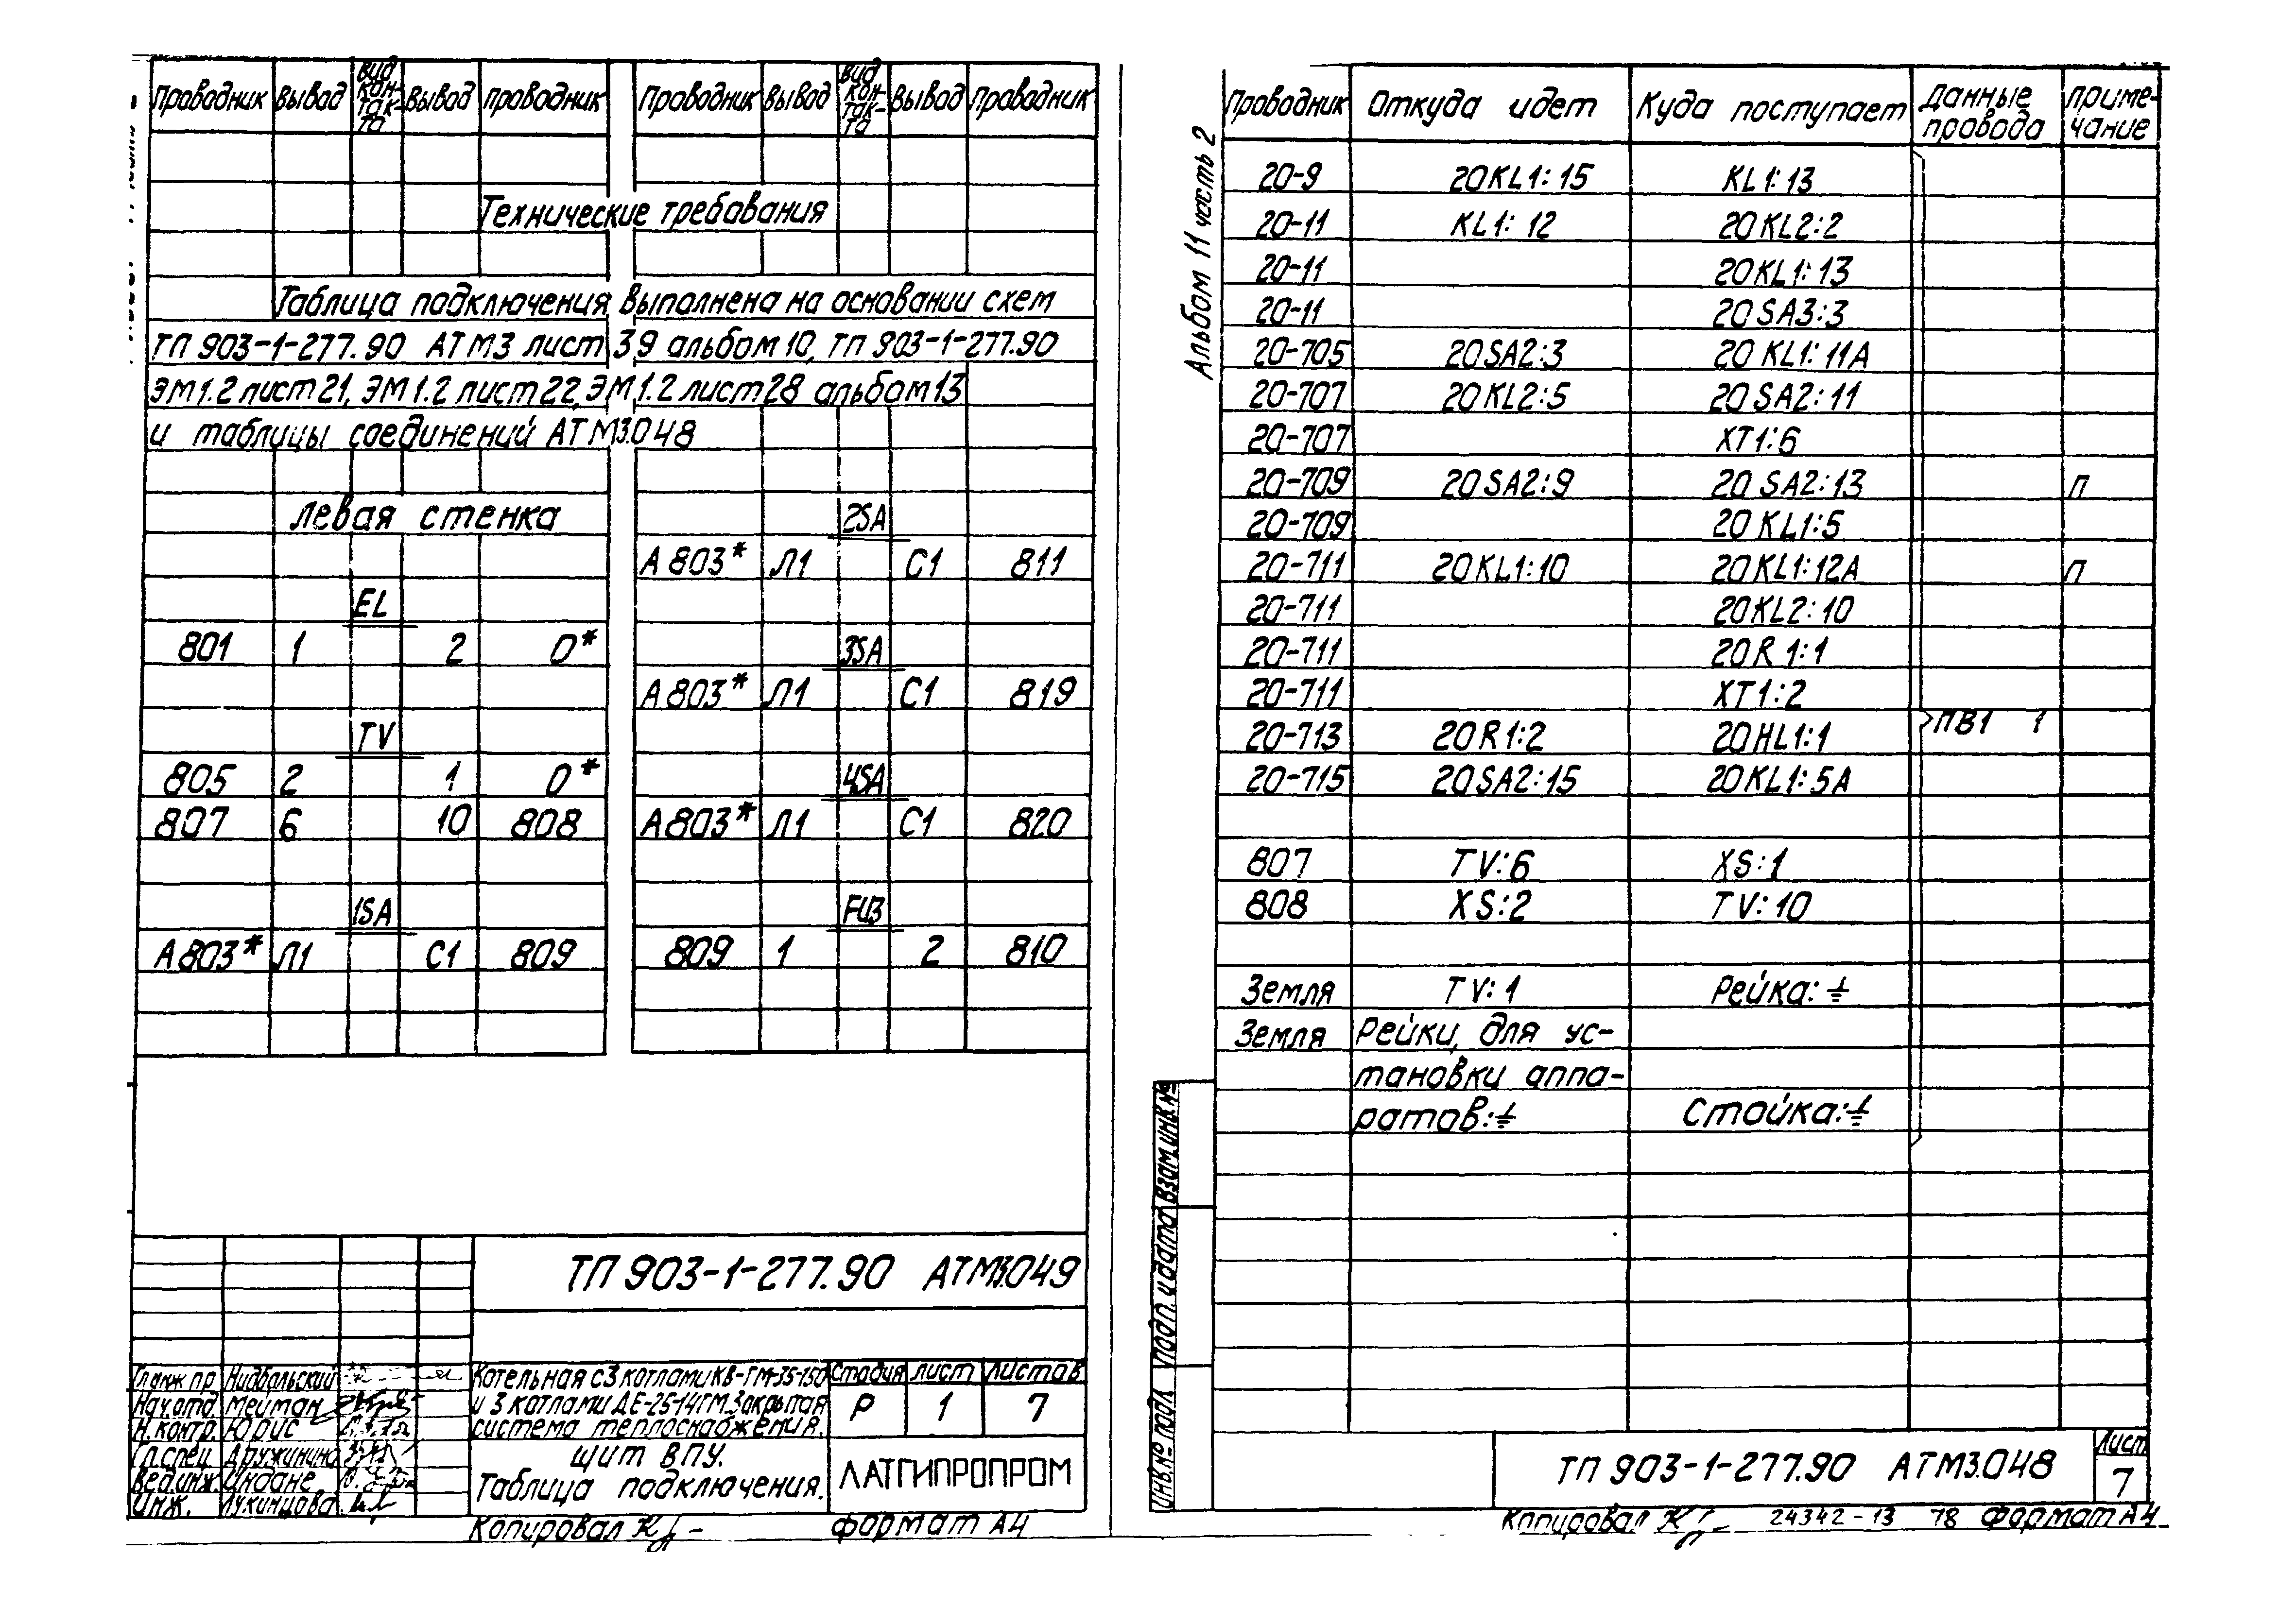 Проводник Вывод Вид контакта Вывод Проводник Проводник Вывод Вид контакта Вывод Проводник
Технические требования
Таблица подключения выполнена на основании схем
ТП 903-1-277.90 АТМ3 лист 39 альбом 10, ТП 903-1-277.90
ЭМ1.2 лист 21, ЭМ1.2 лист 22, ЭМ1.2 лист 28 альбом 13
и таблицы соединений АТМ3.048
Левая стенка
EL
801 1 2 0*
TV
805 2 1 0*
807 6 10 808
1SA
А803* Л1 С1 809
2SA
А803* Л1 С1 811
3SA
А803* Л1 С1 819
4SA
А803* Л1 С1 820
FU3
809 1 2 810
ТП 903-1-277.90 АТМ3.049
Гл.инж.пр. Нидбальский
Нач.отд. Мейтман
Н.контр. Юрис
Гл.спец. Дружинина
Вед.инж. Индане
Инж. Лукинцова
Котельная с 3 котлами КВ-ГМ-35-150
и 3 котлами ДЕ-25-14ГМ. Закрытая
система теплоснабжения.
Стадия Лист Листов
Р 1 7
Щит ВПУ.
Таблица подключения.
ЛАТГИПРОПРОМ
Копировал
Формат А4
Альбом 11 часть 2
Проводник Откуда идет Куда поступает Данные провода Примечание
20-9 20KL1:15 KL1:13
20-11 KL1:12 20KL2:2
20-11 20KL1:13
20-11 20SA3:3
20-705 20SA2:3 20KL1:11А
20-707 20KL2:5 20SA2:11
20-707 XT1:6
20-709 20SA2:9 20SA2:13 П
20-709 20KL1:5
20-711 20KL1:10 20KL1:12А П
20-711 20KL2:10
20-711 20R1:1
20-711 XT1:2
20-713 20R1:2 20HL1:1 ПВ1 1
20-715 20SA2:15 20KL1:5А
807 TV:6 XS:1
808 XS:2 TV:10
Земля TV:1 Рейка:⏚
Земля Рейки, для ус-
тановки аппа-
ратов:⏚ Стойка:⏚
Инв.№ подл. Подп. и дата Взам.инв.№
ТП 903-1-277.90 АТМ3.048
Лист
7
Копировал 24342-13 78 Формат А4